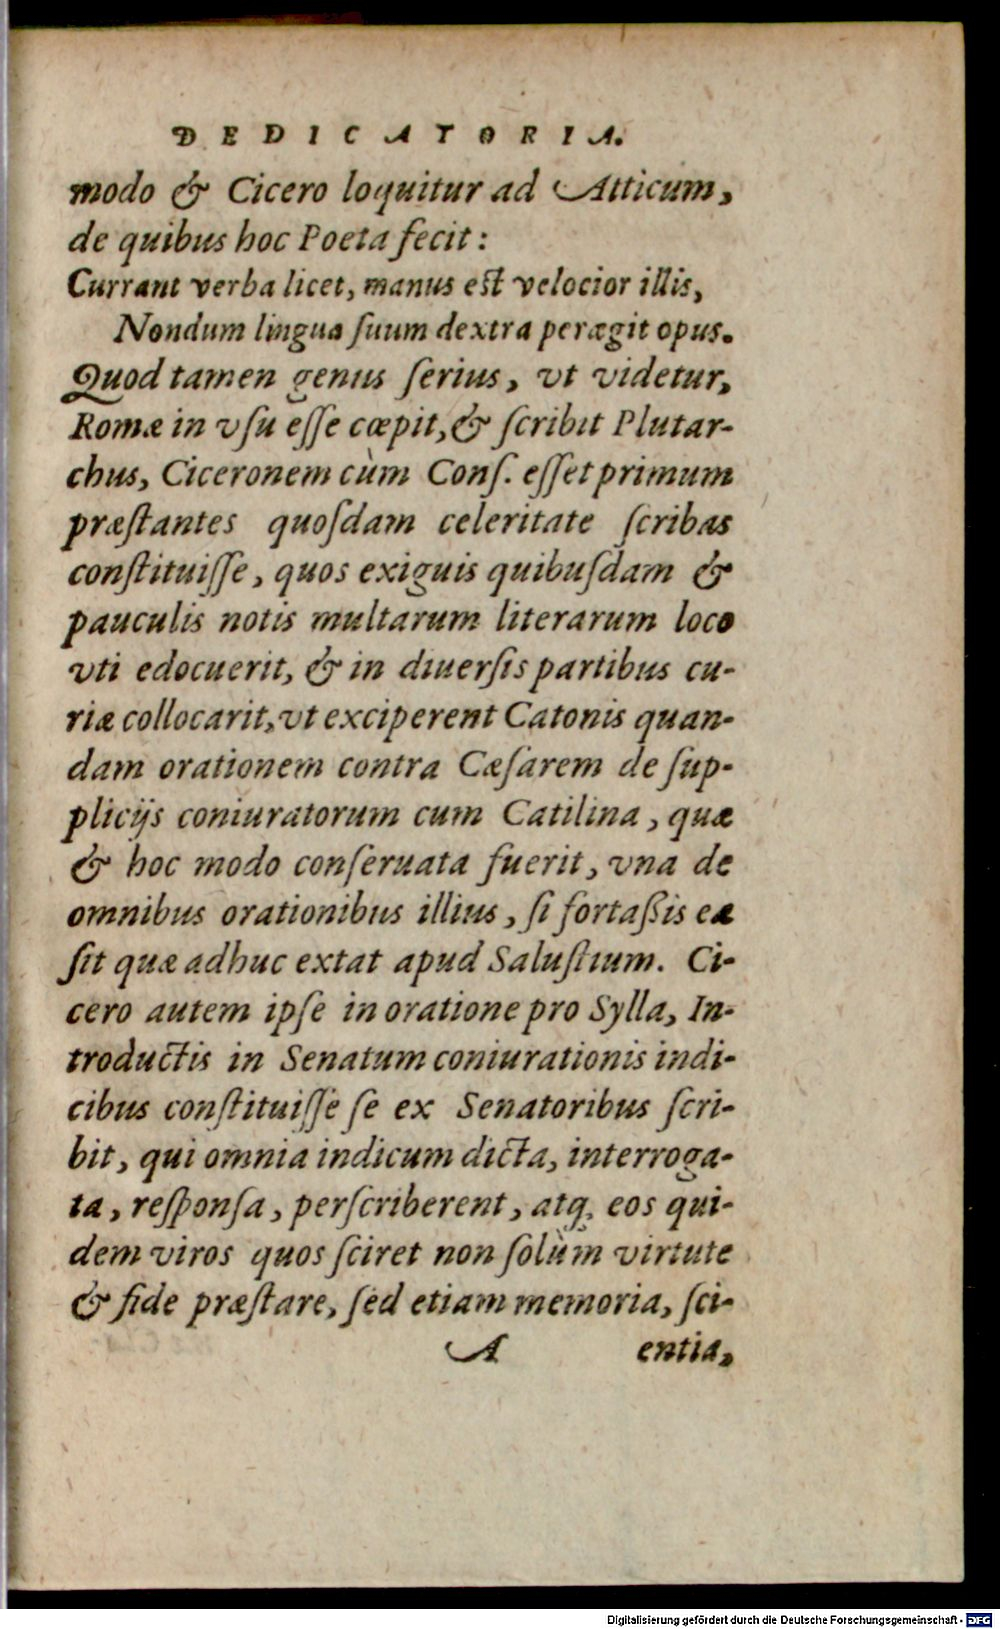 DEDICATORIA.
modo & Cicero loquitur ad Atticum,
de quibus hoc Poeta fecit:
Currant verba licet, manus est velocior illis,
Nondum lingua ſuum dextra perægit opus.
Quod tamen genus ſerius, vt videtur,
Romæ in vſu eſſe cœpit, & ſcribit Plutar-
chus, Ciceronem cùm Conſ. eſſet primum
præſtantes quoſdam celeritate ſcribas
conſtituiſſe, quos exiguis quibuſdam &
pauculis notis multarum literarum loco
vti edocuerit, & in diuerſis partibus cu-
riæ collocarit, vt exciperent Catonis quan-
dam orationem contra Cæſarem de ſup-
plicijs coniuratorum cum Catilina, quæ
& hoc modo conſeruata fuerit, vna de
omnibus orationibus illius, ſi fortaßis ea
ſit quæ adhuc extat apud Saluſtium. Ci-
cero autem ipſe in oratione pro Sylla, In-
troductis in Senatum coniurationis indi-
cibus conſtituiſſe ſe ex Senatoribus ſcri-
bit, qui omnia indicum dicta, interroga-
ta, reſponſa, perſcriberent, atq; eos qui-
dem viros quos ſciret non ſolùm virtute
& fide præſtare, ſed etiam memoria, ſci-
A entia,
Digitalisierung gefördert durch die Deutsche Forschungsgemeinschaft - DFG